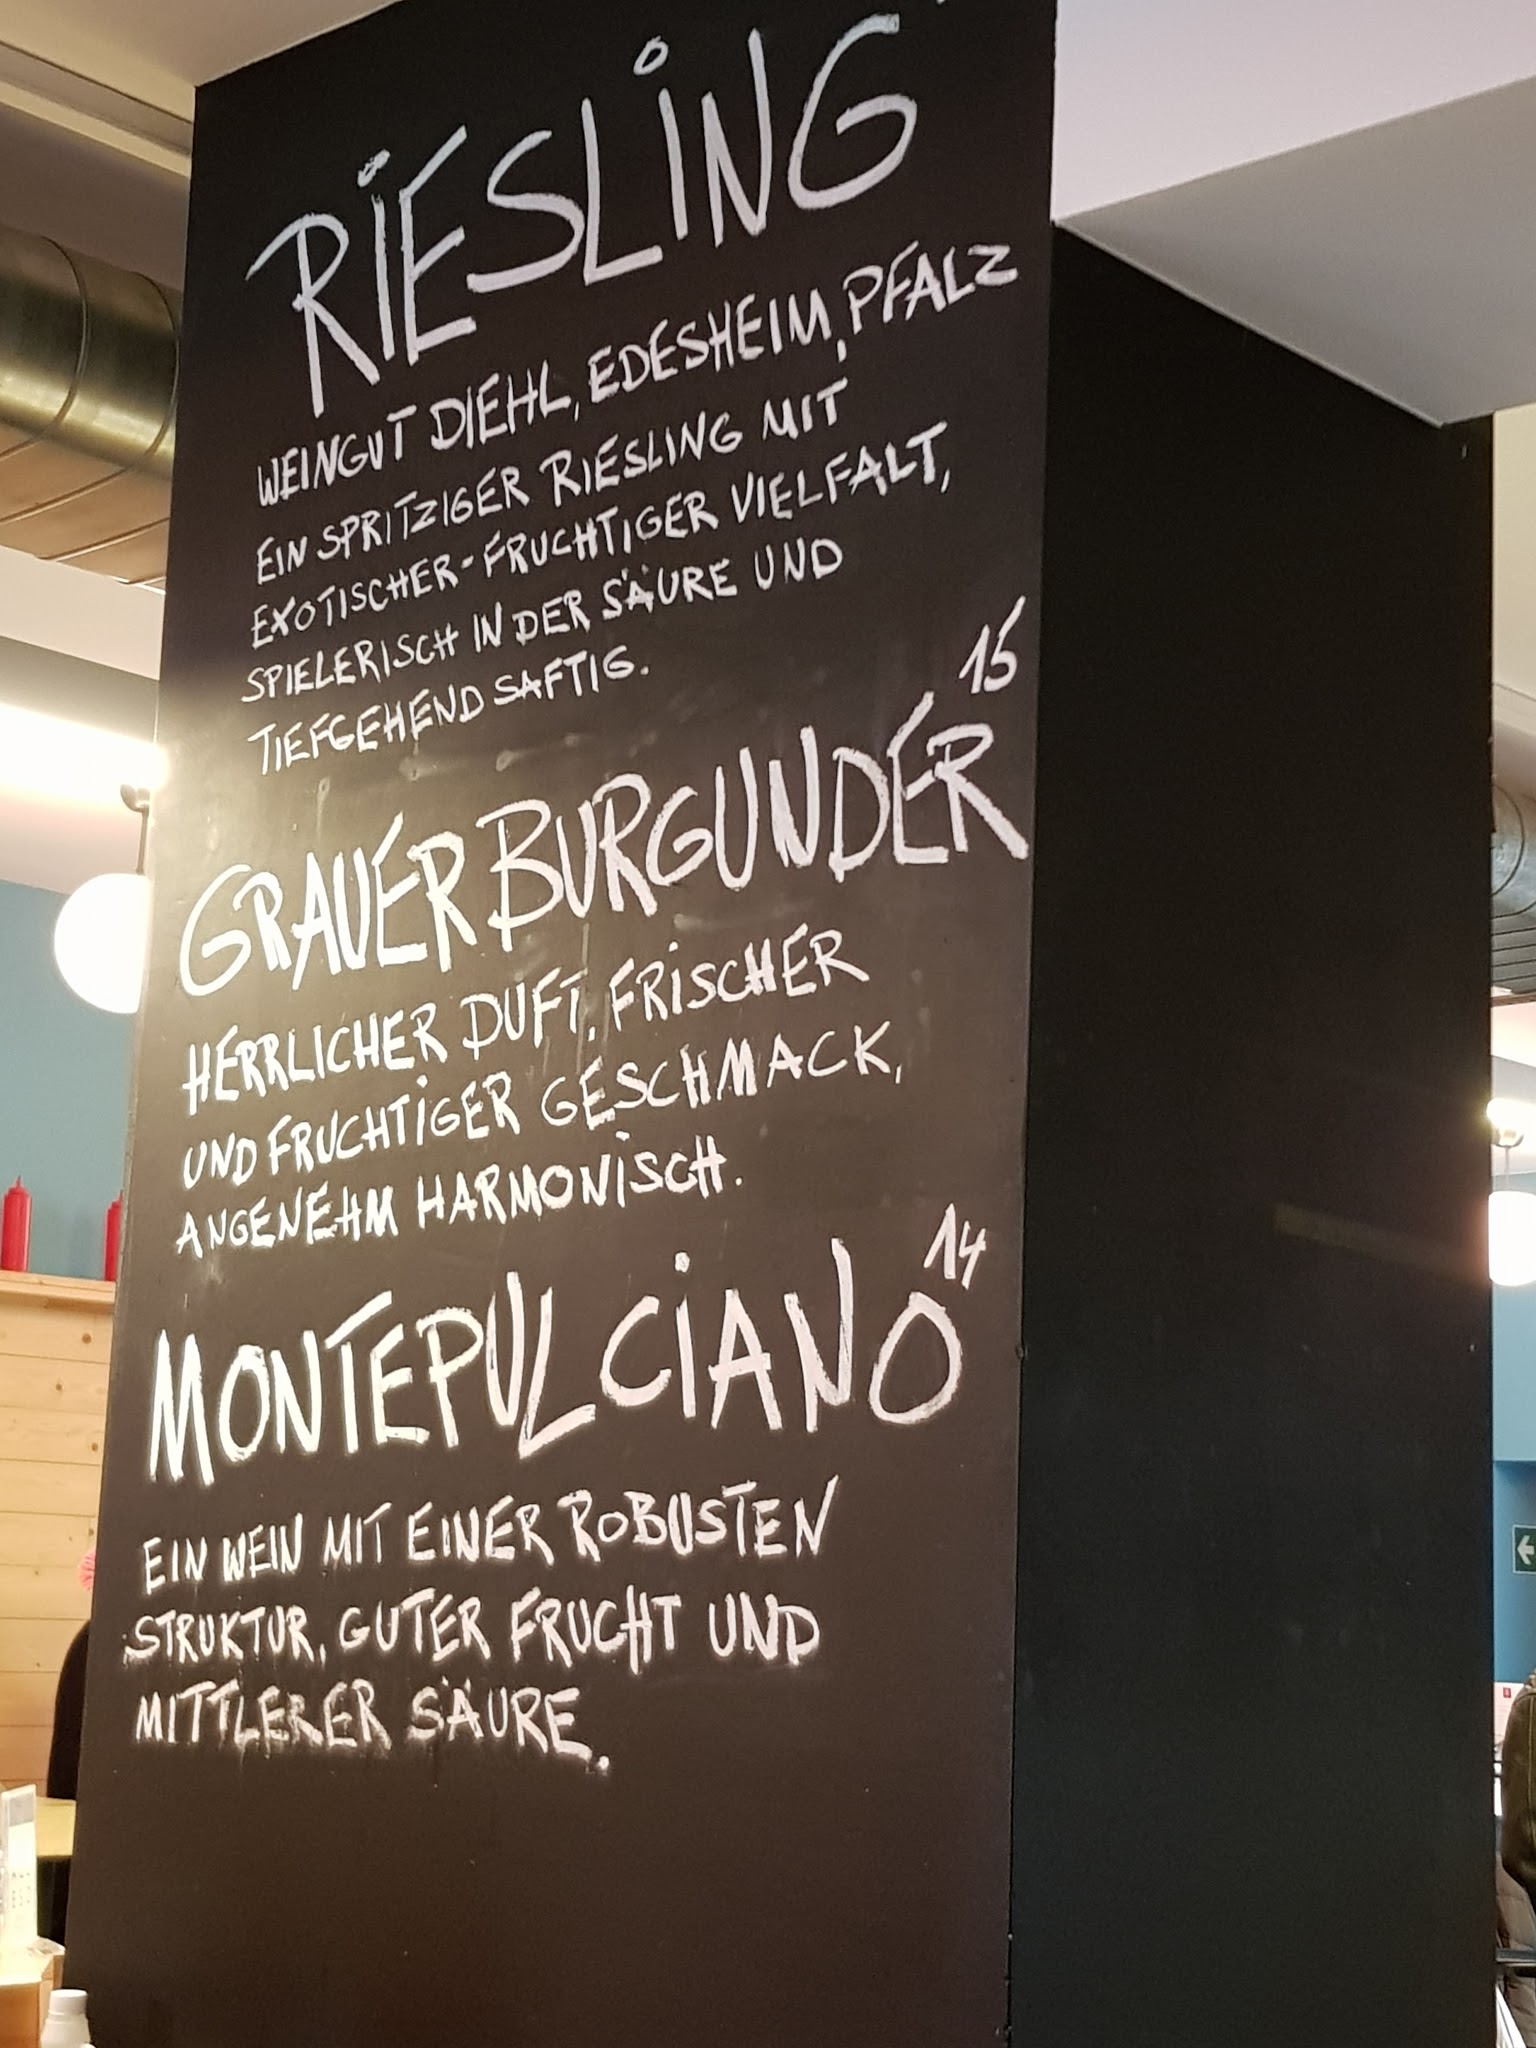 RIESLING
WEINGUT DIEHL, EDESHEIM, PFALZ
EIN SPRITZIGER RIESLING MIT
EXOTISCHER-FRUCHTIGER VIELFALT,
SPIELERISCH IN DER SÄURE UND
TIEFGEHEND SAFTIG.
GRAUER BURGUNDER 15
HERRLICHER DUFT. FRISCHER
UND FRUCHTIGER GESCHMACK,
ANGENEHM HARMONISCH.
MONTEPULCIANO 14
EIN WEIN MIT EINER ROBUSTEN
STRUKTUR, GUTER FRUCHT UND
MITTLERER SÄURE.